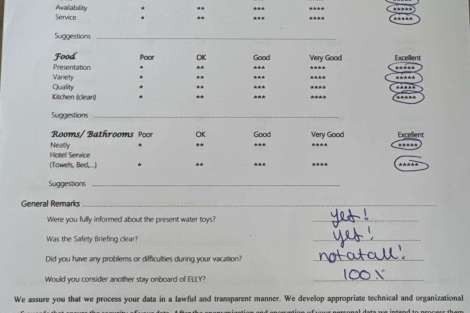 Availability * ** *** **** *****
Service * ** *** **** *****
Suggestions
Food Poor OK Good Very Good Excellent
Presentation * ** *** **** *****
Variety * ** *** **** *****
Quality * ** *** **** *****
Kitchen (clean) * ** *** **** *****
Suggestions
Rooms/ Bathrooms Poor OK Good Very Good Excellent
Neatly * ** *** **** *****
Hotel Service
(Towels, Bed,...) * ** *** **** *****
Suggestions
General Remarks
Were you fully informed about the present water toys? yes!
Was the Safety Briefing clear? yes!
Did you have any problems or difficulties during your vacation? not at all!
Would you consider another stay onboard of ELLY? 100%
We assure you that we process your data in a lawful and transparent manner. We develop appropriate technical and organizational